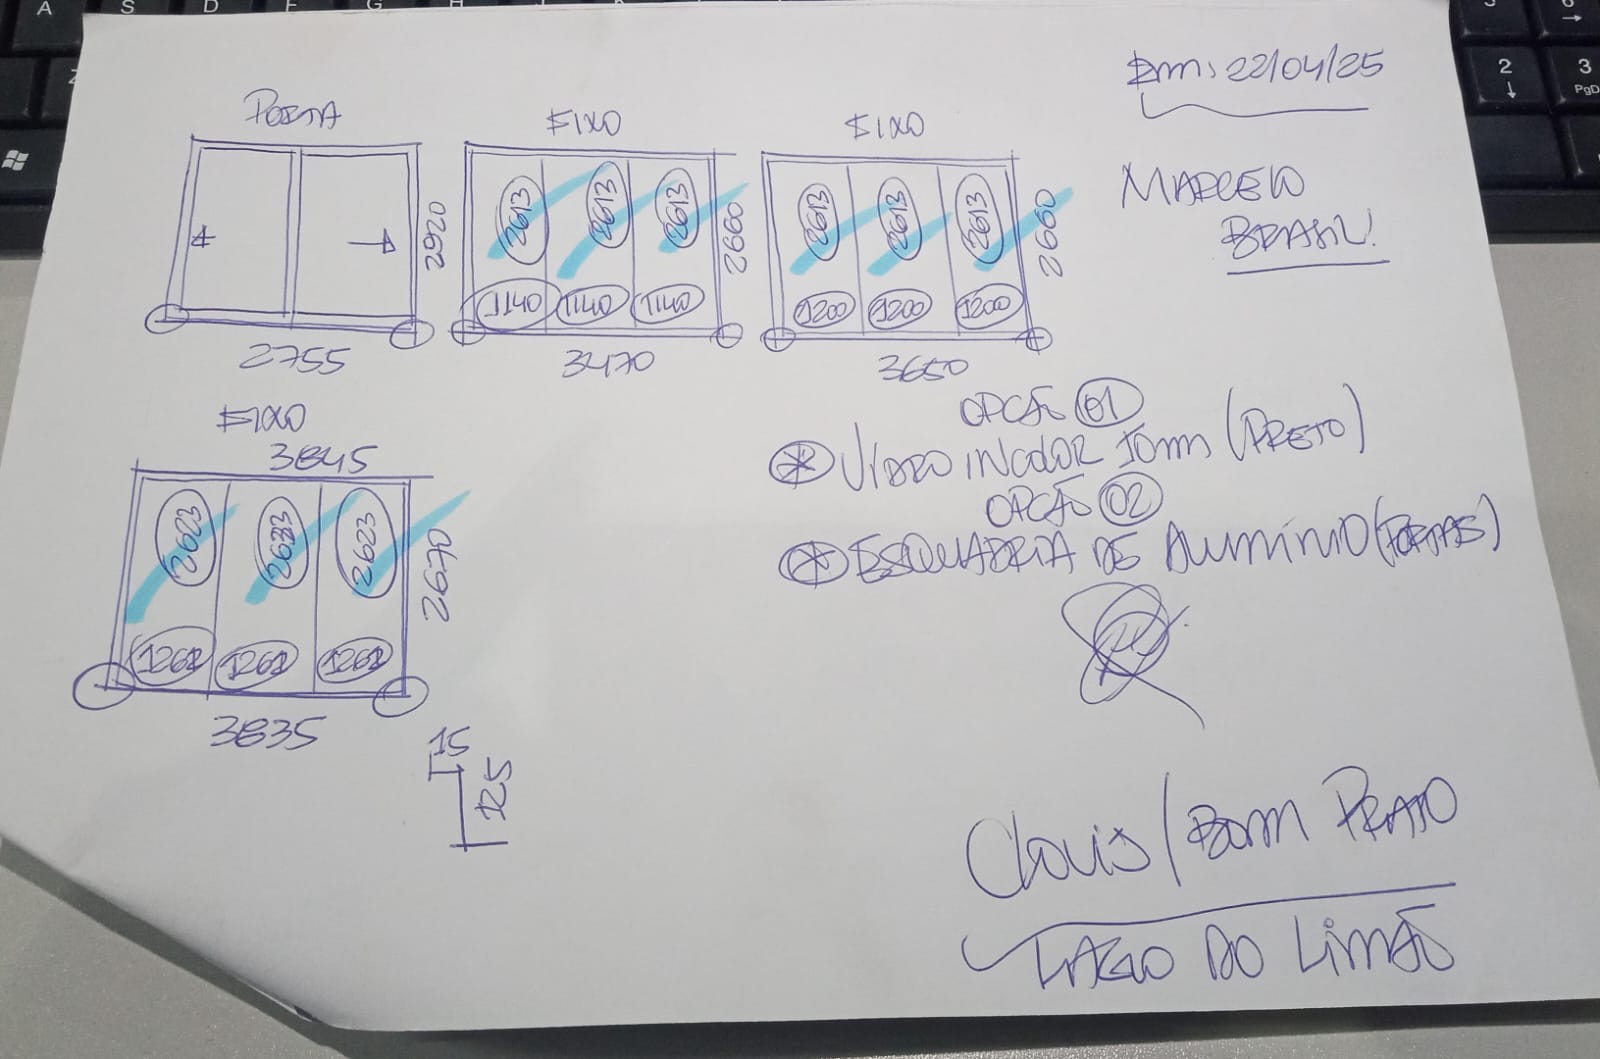 Em: 22/04/25
MARCELO
BRASIL!
PORTA
2920
2755
FIXO
2613 2613 2613
1140 1140 1140
2660
3470
FIXO
2613 2613 2613
1200 1200 1200
2660
3650
FIXO
3845
2623 2623 2623
1262 1262 1262
2670
3835
15
125
OPÇÃO 01
VIDRO INCOLOR 10mm (PRETO)
OPÇÃO 02
ESQUADRIA DE ALUMÍNIO (PORTAS)
Clovis / BOM PRATO
LARGO DO LIMÃO
A S D F G H
2
3
PgD